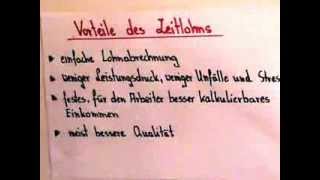 Vorteile des Zeitlohns
einfache Lohnabrechnung
weniger Leistungsdruck, weniger Unfälle und Stress
festes, für den Arbeiter besser kalkulierbares
Einkommen
meist bessere Qualität